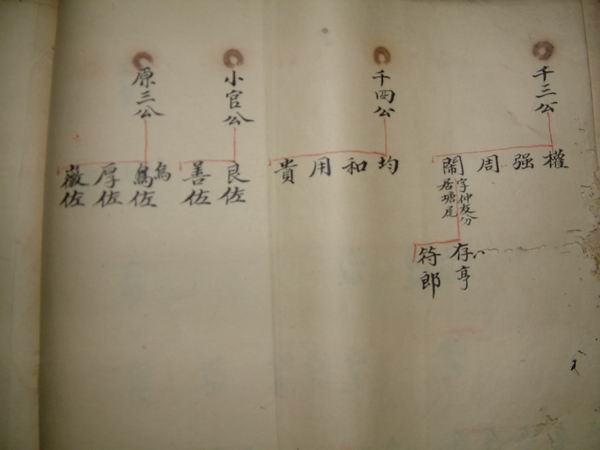 千三公
權
强
周
閙
字仲友分
居塘尾
存亨
符郎
千四公
均
和
用
貴
小官公
良佐
善佐
原三公
佐
厚佐
佐